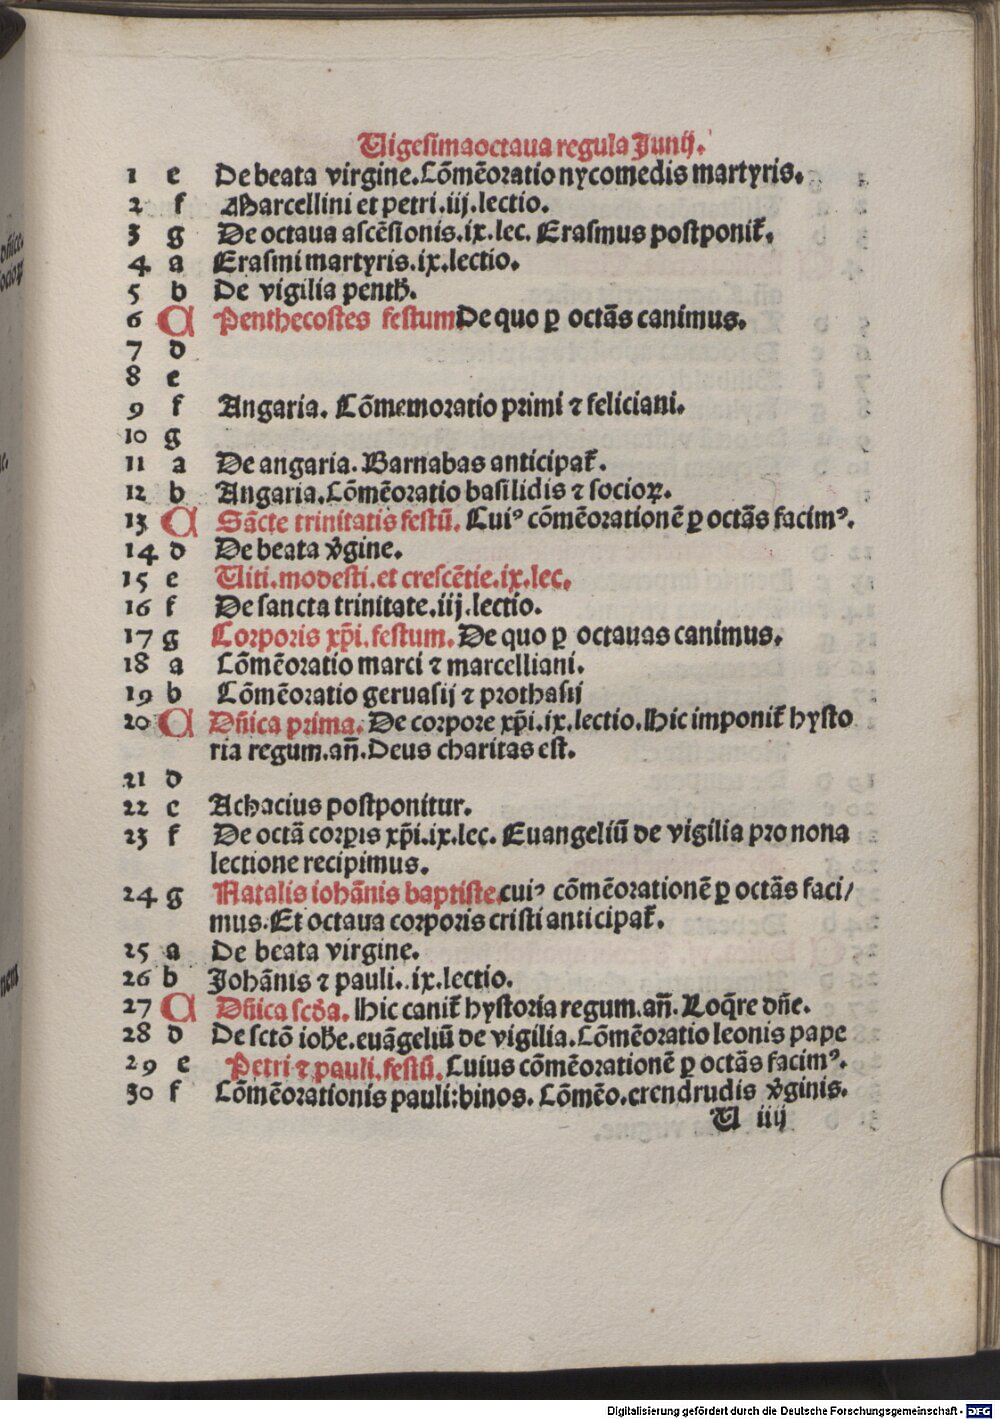 Uigesimaoctaua regula Junij.
1 e De beata virgine. Cõmẽoratio nycomedis martyris.
2 f Marcellini et petri. iij. lectio.
3 g De octaua ascẽsionis. ix. lec. Erasmus postponit̃.
4 a Erasmi martyris. ix. lectio.
5 b De vigilia penth̃.
6 C Penthecostes festum De quo ꝑ octãs canimus.
7 d
8 e
9 f Angaria. Cõmemoratio primi ⁊ feliciani.
10 g
11 a De angaria. Barnabas anticipat̃.
12 b Angaria. Cõmẽoratio basilidis ⁊ socioꝝ.
13 C Sãcte trinitatis festũ. Cuiꝰ cõmẽorationẽ ꝑ octãs facimꝰ.
14 d De beata v̾gine.
15 e Uiti. modesti. et crescẽtie. ix. lec.
16 f De sancta trinitate. iij. lectio.
17 g Corporis xp̃i. festum. De quo ꝑ octauas canimus.
18 a Cõmẽoratio marci ⁊ marcelliani.
19 b Cõmẽoratio geruasij ⁊ prothasij
20 C Dñica prima. De corpore xp̃i. ix. lectio. Hic imponit̃ hysto
ria regum. añ. Deus charitas est.
21 d
22 e Achacius postponitur.
23 f De octã corꝑis xp̃i. ix. lec. Euangeliũ de vigilia pro nona
lectione recipimus.
24 g Natalis iohãnis baptiste. cuiꝰ cõmẽorationẽ ꝑ octãs faci/
mus. Et octaua corporis cristi anticipat̃.
25 a De beata virgine.
26 b Johãnis ⁊ pauli. ix. lectio.
27 C Dñica scđa. Hic canit̃ hystoria regum. añ. Loq̃re dñe.
28 d De sctõ ioh̃e. euãgeliũ de vigilia. Cõmẽoratio leonis pape
29 e Petri ⁊ pauli. festũ. Cuius cõmẽorationẽ ꝑ octãs facimꝰ.
30 f Cõmẽorationis pauli: binos. Cõmẽo. erendrudis v̾ginis.
U iiij
Digitalisierung gefördert durch die Deutsche Forschungsgemeinschaft - DFG